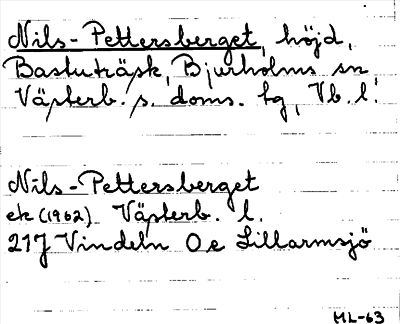 Nils-Pettersberget, höjd,
Bastuträsk, Bjurholms sn,
Västerb. s. doms. tg, Vb. l.
Nils-Pettersberget
ek (1962) Västerb. l.
21J Vindeln 0e Lillarmsjö
ML-63